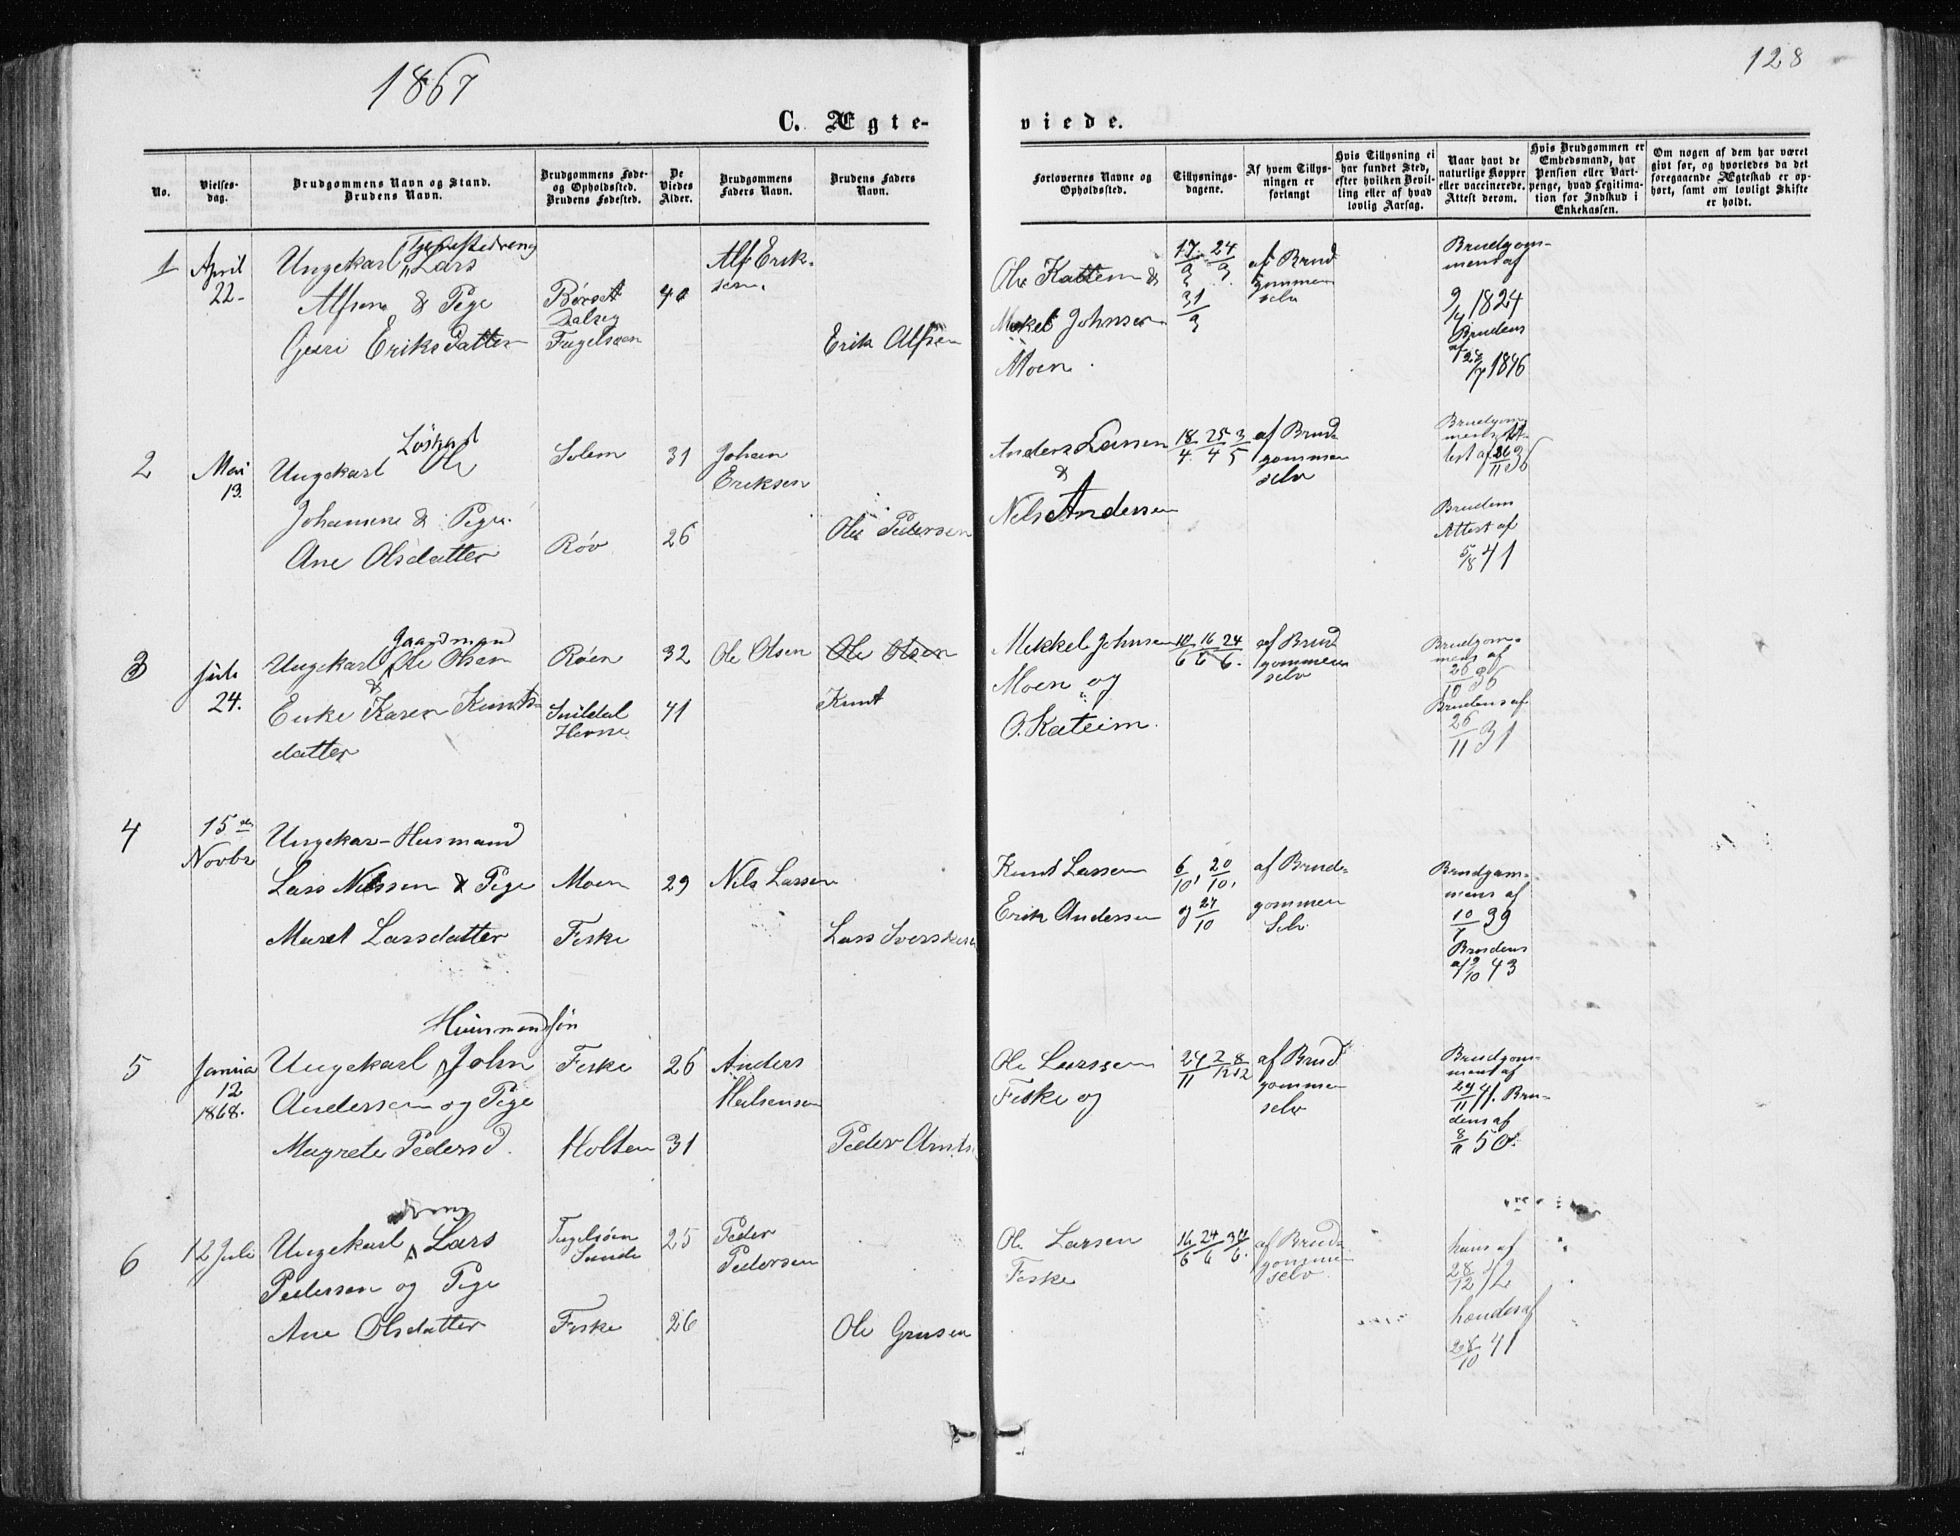 1867
128
C. Ægte-
viede.
No.
Vielses-
dag.
Brudgommens Navn og Stand.
Brudens Navn.
Brudgommens Føde-
og Opholdssted.
Brudens Fødested.
De
Viedes
Alder.
Brudgommens
Faders Navn.
Brudens Faders
Navn.
Forlovernes Navne og
Opholdssted.
Tillysnings-
dagene.
Af hvem Tillys-
ningen er
forlangt
Hvis Tillysning ei
har fundet Sted,
efter hvilken Bevil-
ling eller af hvad
lovlig Aarsag.
Naar havt de
naturlige Kopper
eller vaccinerede.
Attest derom.
Hvis Brudgommen er
Embedsmand, har
Pension eller Vart-
penge, hvad Legitima-
tion for Indskud i
Enkekassen.
Om nogen af dem har været
givt før, og hvorledes da det
foregaaende Ægteskab er op-
hørt, samt om lovligt Skifte
er holdt.
1
April
22-
Tjenestedreng
Ungekarl Lars
Alfsen & Pige
Guri Eriksdatter
Børset
Dalseg
Fugelsøen
40
Alf Erik-
sen.
Erik Alfsen
Ole Kattem &
Mekel Johnsen
Moen.
17/3 24/3
31/3
af Brud
gommen
selv
Brudgom-
mens af
9/4 1824
Brudens
af
28/7 1846
2
Mai
13.
Løskarl
Ungekarl Ole
Johansen & Pige
Ane Olsdatter
Solem
Røv
31
26
Johan
Eriksen
Ole Pedersen
Anders Larsen
&
Nels Andersen
18/4 25/4 3/5
af Brud
gommen
selv
Brudgom
mens At-
test af 26/11 36
Brudens
Attest af
5/8 41
3
Juli
24.
Gaardmand
Ungekarl Ole Olsen
&
Enke Karen Knuts-
datter
Røen
Snildal
Hevne
32
41
Ole Olsen
Ole Olsen
Knut
Mekkel Johnsen
Moen og
O. Kateim.
10/6 16/6 24/6.
af Brud
gommen
selv
Brudgom-
mens af
26/10 36
Brudens af
26/11 31
4
15de
Novbr
Ungekar-Husmand
Lars Nilssen & Pige
Maret Larsdatter
Moen
Feske
29
Nils Larsen
Lars Sversken
Knut Larsen
Erik Andersen
6/10, 20/10,
og 27/10
af Brude-
gommen
Selv
Brudgom-
mens af
10/7 39
Brudens
af 9/10 43
5
Januar
12
1868.
Huusmandssøn
Ungekarl John
Andersen og Pige
Magrete Pedersd.
Feske
Holten
26
31
Anders
Halsensen
Peder Arnts
Ole Larssen
Feske og
24/11 2/12 8/12
af Brud
gommen
selv
Brudgom-
mens af
29/11 41. Bru-
dens af
8/11 50.
6
12 Juli
dreng
Ungekarl Lars
Pedersen og Pige
Ane Olsdatter
Fugelsøen
Sande
Feske
25
26
Peder
Pedersen
Ole Grusen
Ole Larsen
Feske
16/6 24/6 30/6.
af Brud
gommen
selv.
hans af
28/12 42
hendes af
28/10 41